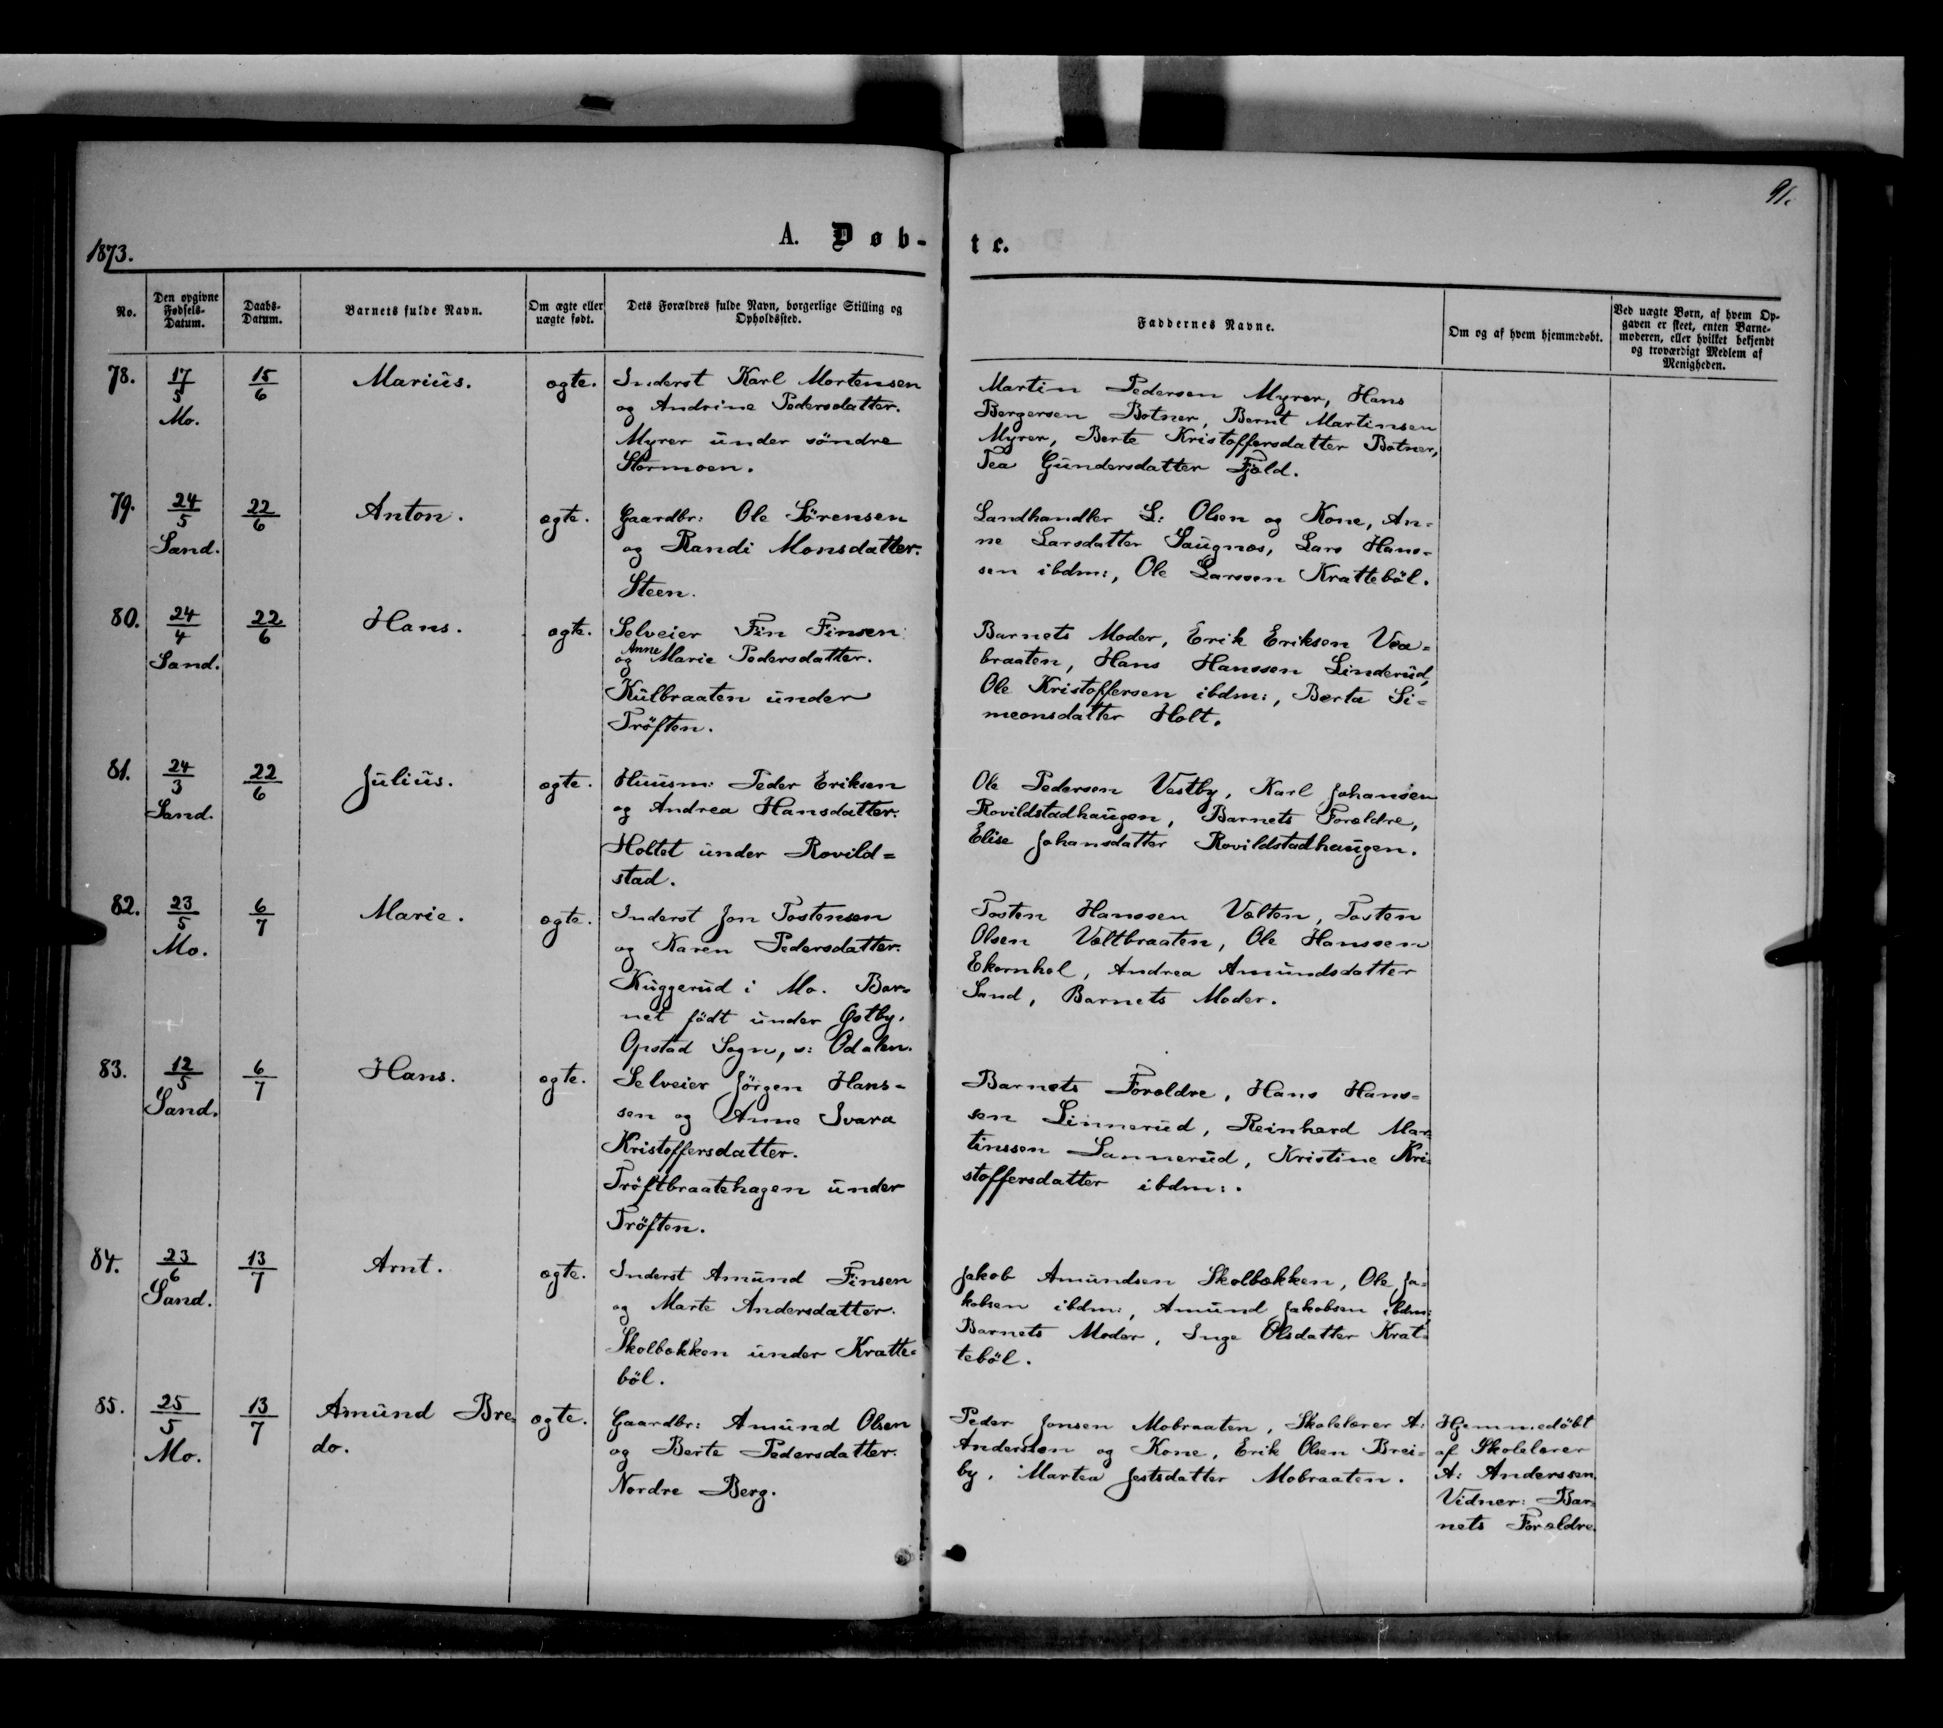 91.
1873.
A. Døb-
te.
No.
Den opgivne
Fødsels-
Datum.
Daabs-
Datum.
Barnets fulde Navn.
Om ægte eller
uægte født.
Dets Forældres fulde Navn, borgerlige Stilling og
Opholdssted.
Faddernes Navne.
Om og af hvem hjemmedøbt.
Ved uægte Børn, af hvem Op-
gaven er skeet, enten Barne-
moderen, eller hvilket bekjendt
og troværdigt Medlem af
Menigheden.
78.
17/5
Mo.
15/6
Marius.
ægte.
Inderst Karl Mortensen
og Andrine Pedersdatter.
Myrer under söndre
Stormoen.
Martin Pedersen Myrer, Hans
Bergersen Botner, Bernt Martinsen
Myrer, Berte Kristoffersdatter Botner,
Tea Gundersdatter Fjeld.
79.
24/5
Sand.
22/6
Anton.
ægte.
Gaardbr: Ole Sörensen
og Randi Monsdatter.
Steen.
Landhandler L: Olsen og Kone, An-
ne Larsdatter Saugnæs, Lars Hans-
sen ibdm:, Ole Larssen Kratteböl.
80.
24/4
Sand.
22/6
Hans.
ægte.
Selveier Fin Finsen
og Anne Marie Pedersdatter.
Kulbraaten under
Tröften.
Barnets Moder, Erik Eriksen Vea-
braaten, Hans Hanssen Linderud,
Ole Kristoffersen ibdm:, Berta Si-
meonsdatter Holt.
81.
24/3
Sand.
22/6
Julius.
ægte.
Huusm: Peder Eriksen
og Andrea Hansdatter.
Holtet under Rovild=
stad.
Ole Pedersen Vestby, Karl Johansen
Rovildstadhaugen, Barnets Forældre,
Elise Johansdatter Rovildstadhaugen.
82.
23/5
Mo.
6/7
Marie.
ægte.
Inderst Jon Tostensen
og Karen Pedersdatter.
Kuggerud i Mo. Bar-
net födt under Østby,
Opstad Sogn, s: Odalen.
Tosten Hanssen Velten, Tosten
Olsen Veltbraaten, Ole Hanssen
Ekornhol, Andrea Amundsdatter
Sand, Barnets Moder.
83.
12/5
Sand.
6/7
Hans.
ægte.
Selveier Jörgen Hans-
sen og Anne Svara
Kristoffersdatter.
Tröftbraatehagen under
Tröften.
Barnets Forældre, Hans Hans-
sen Linnerud, Reinhard Mar-
tinssen Sannerud, Kristine Kri-
stoffersdatter ibdm:.
84.
23/6
Sand.
13/7
Arnt.
ægte.
Inderst Amund Finsen
og Marte Andersdatter.
Skolbækken under Kratte-
böl.
Jakob Amundsen Skolbækken, Ole Ja-
kobsen ibdm:, Amund Jakobsen ibdm:,
Barnets Moder, Inge Olsdatter Krat-
teböl.
85.
25/5
Mo.
13/7
Amund Bre-
do.
ægte.
Gaardbr: Amund Olsen
og Berte Pedersdatter.
Nordre Berg.
Peder Jonsen Mobraaten, Skolelærer A:
Anderssen og Kone, Erik Olsen Brei-
by, Martea Jestsdatter Mobraaten.
Hjemmedöbt
af Skolelærer
A: Anderssen.
Vidner: Bar-
nets Forældre.